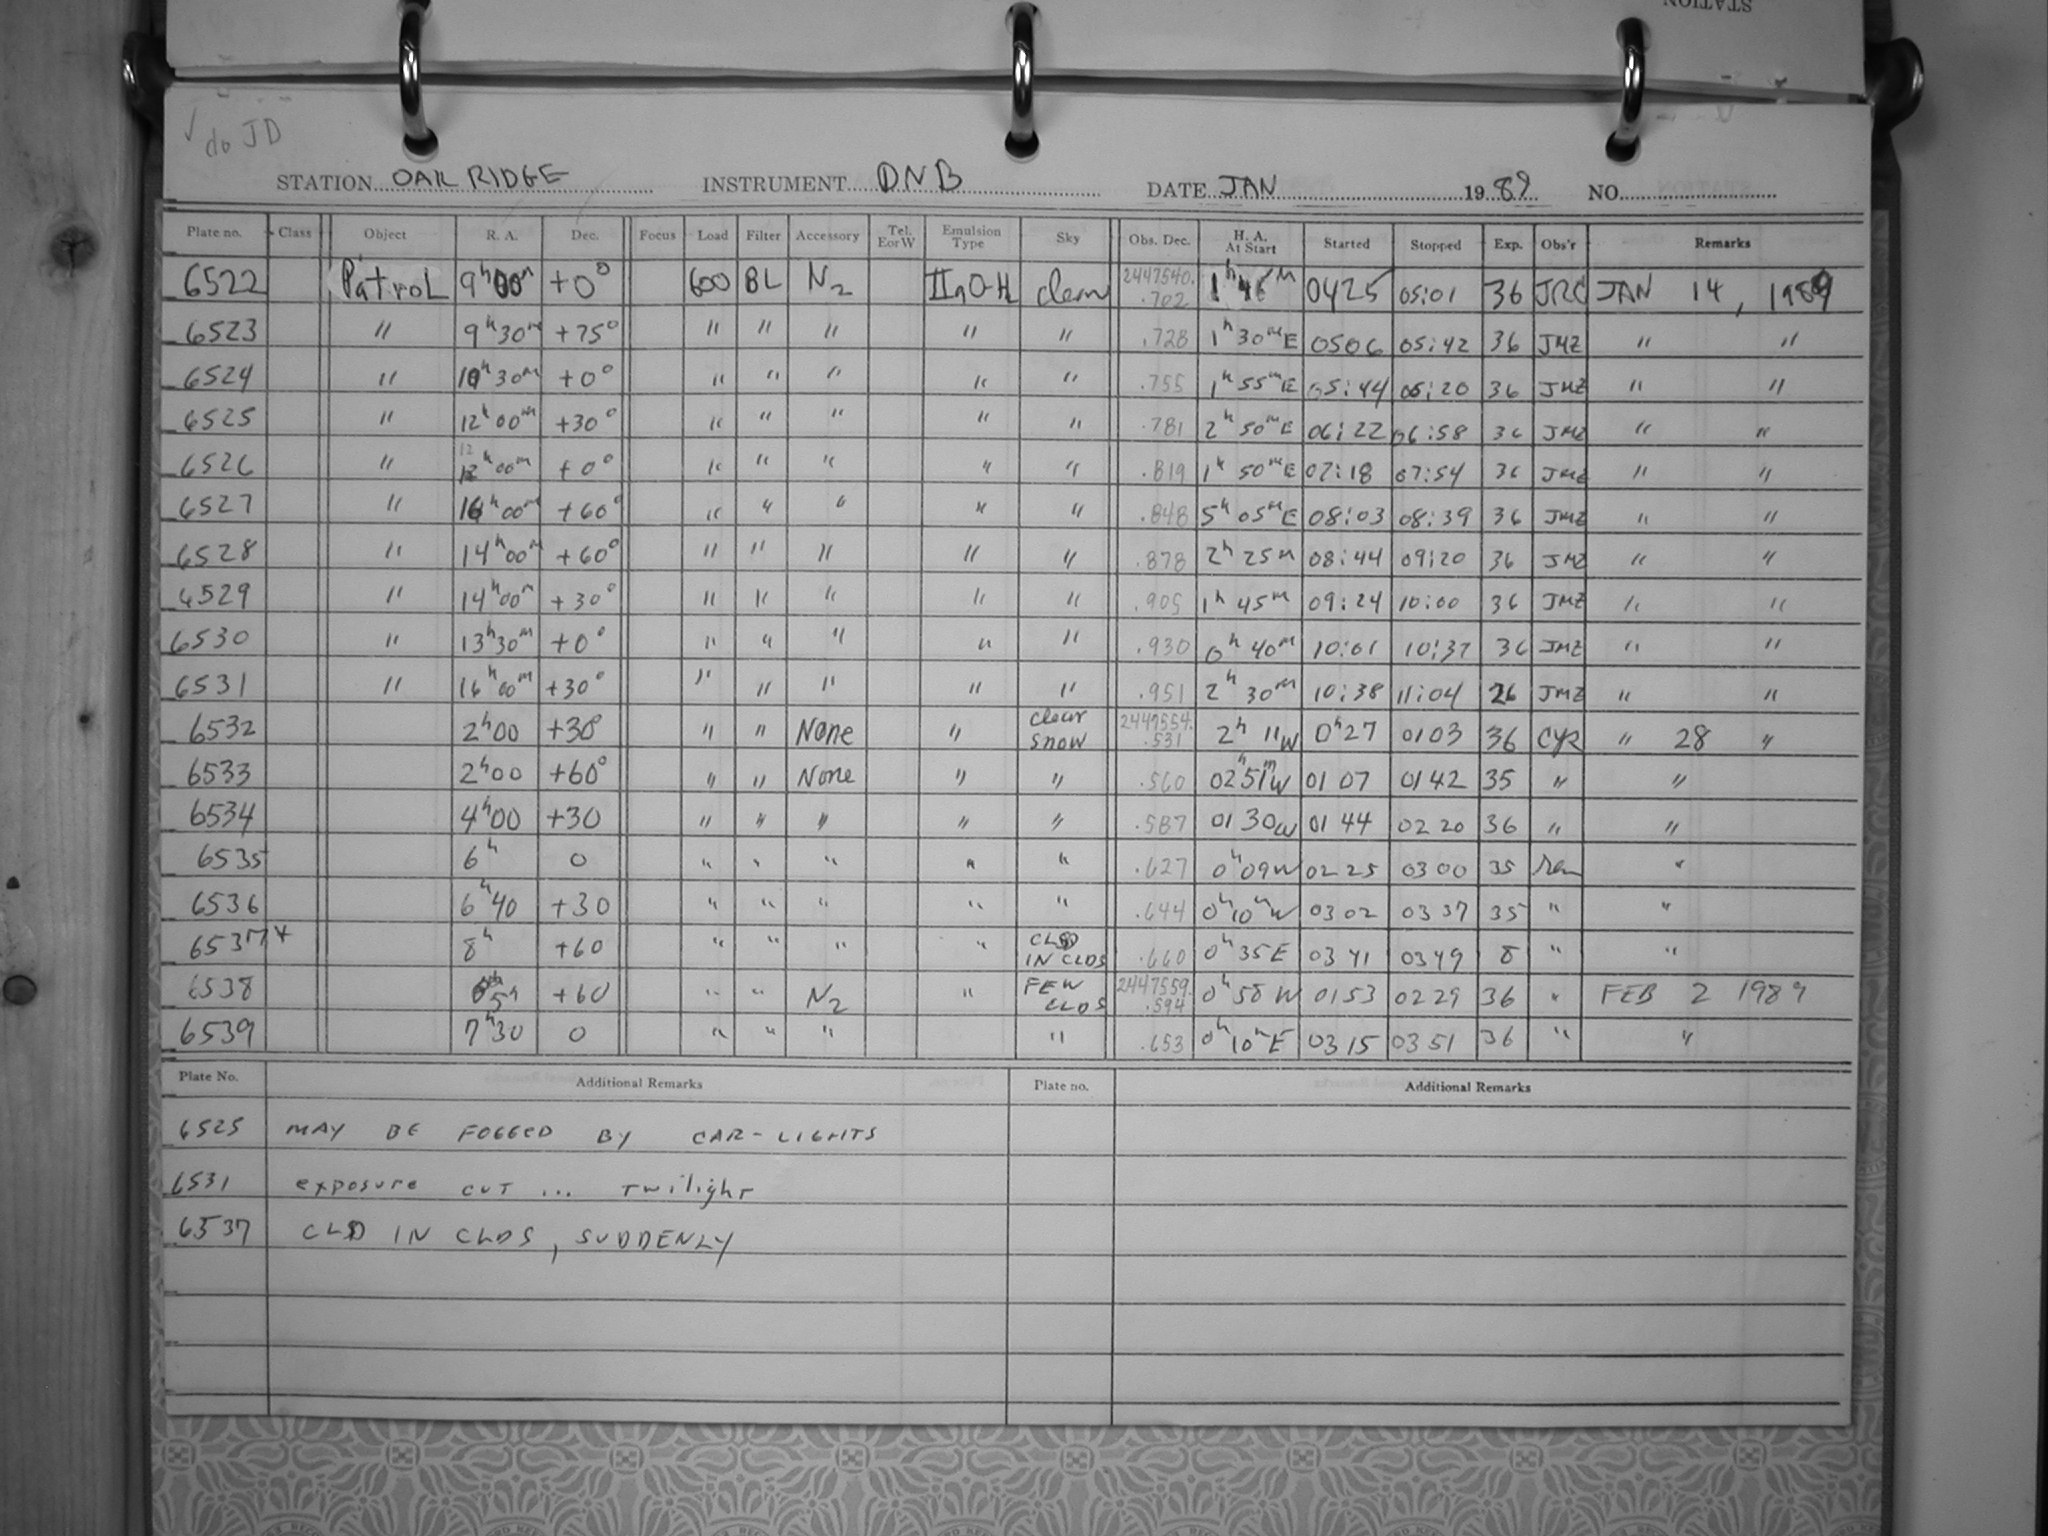 STATION
✓ do JD
STATION OAK RIDGE INSTRUMENT DNB DATE JAN 1989 NO.
Plate no. Class Object R. A. Dec. Focus Load Filter Accessory Tel. E or W Emulsion Type Sky Obs. Dec. H. A. At Start Started Stopped Exp. Obs'r Remarks
6522 Patrol 9h00m +0° 600 BL N2 IIaO-H clear 2447540.702 1h 45m 0425 05:01 36 JRC JAN 14, 1989
6523 " 9h30m +75° " " " " " .728 1h 30mE 0506 05:42 36 JMZ " "
6524 " 10h30m +0° " " " " " .755 1h 55mE 05:44 06:20 36 JMZ " "
6525 " 12h00m +30° " " " " " .781 2h 50mE 06:22 06:58 36 JMZ " "
6526 " 12h00m +0° " " " " " .819 1h 50mE 07:18 07:54 36 JMZ " "
6527 " 16h00m +60° " " " " " .848 5h 05mE 08:03 08:39 36 JMZ " "
6528 " 14h00m +60° " " " " " .878 2h 25m 08:44 09:20 36 JMZ " "
6529 " 14h00m +30° " " " " " .905 1h 45m 09:24 10:00 36 JMZ " "
6530 " 13h30m +0° " " " " " .930 0h 40m 10:01 10:37 36 JMZ " "
6531 " 16h00m +30° " " " " " .951 2h 30m 10:38 11:04 26 JMZ " "
6532 2h00 +30° " " None " clear snow 2447554.531 2h 11W 0h27 0103 36 CYR " 28 "
6533 2h00 +60° " " None " " .560 02h51mW 01 07 01 42 35 " "
6534 4h00 +30 " " " " " .587 01 30W 01 44 02 20 36 " "
6535 6h 0 " " " " " .627 0h09W 02 25 03 00 35 "
6536 6h40 +30 " " " " " .644 0h10mW 03 02 03 37 35 " "
6537* 8h +60 " " " " CLSD IN CLDS .660 0h35E 03 41 0349 8 " "
6538 5h +60 " " N2 " FEW CLDS 2447559.594 0h58W 0153 02 29 36 " FEB 2 1989
6539 7h30 0 " " " " .653 0h10mE 03 15 03 51 36 " "
Plate No. Additional Remarks Plate no. Additional Remarks
6525 MAY BE FOGGED BY CAR-LIGHTS
6531 exposure cut ... twilight
6537 CLSD IN CLDS, SUDDENLY